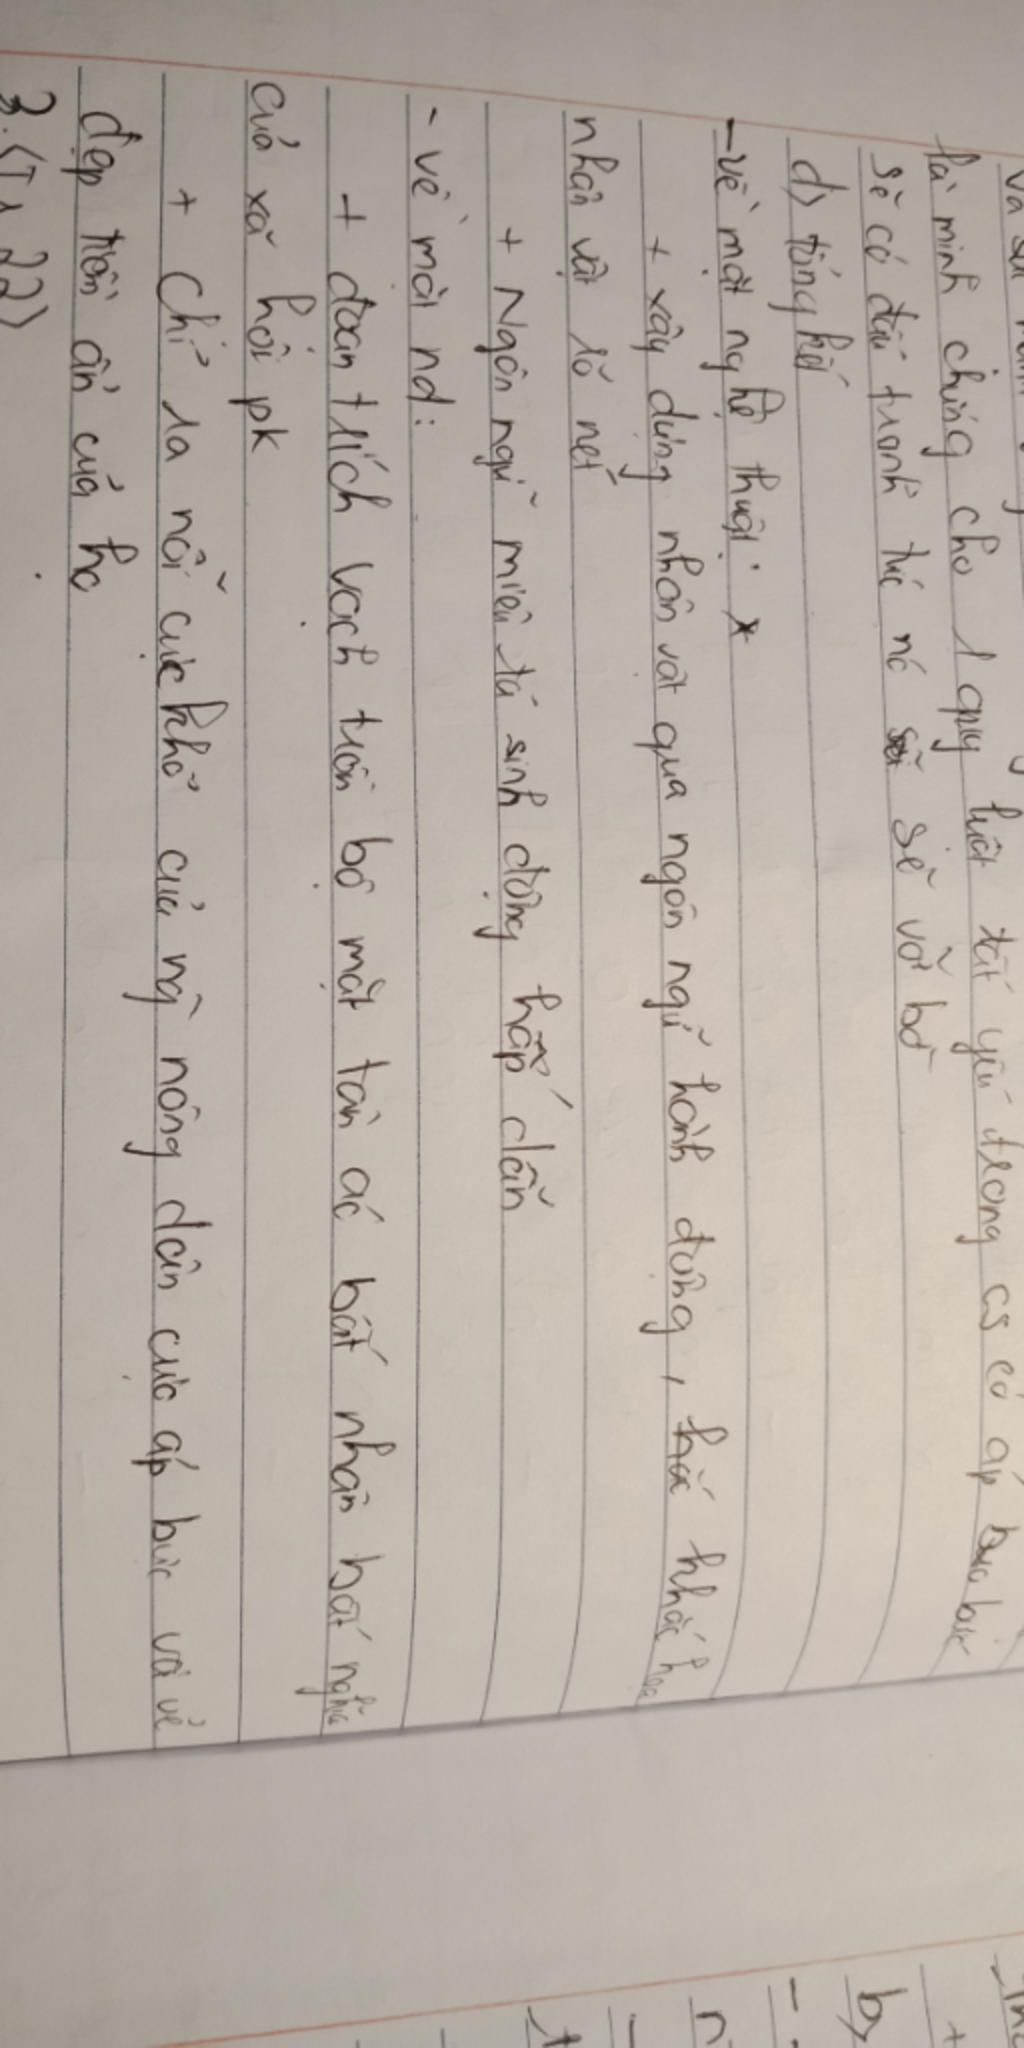 là minh chứng cho 1 quy luật tất yếu trong cs có áp bức
sẽ có đấu tranh tức nó sẽ vỡ bờ
d) tổng kết
- về mặt nghệ thuật: *
+ xây dựng nhân vật qua ngôn ngữ hành động, khắc hoạ
nhân vật rõ nét
+ Ngôn ngữ miêu tả sinh động hấp dẫn
- về mặt nd:
+ đoạn trích vạch trần bộ mặt tàn ác bất nhân bất nghĩa
của xã hội pk
+ Chỉ ra nỗi cực khổ của ng nông dân cực áp bức và vẻ
đẹp tiềm ẩn của họ
3. (T1 22)